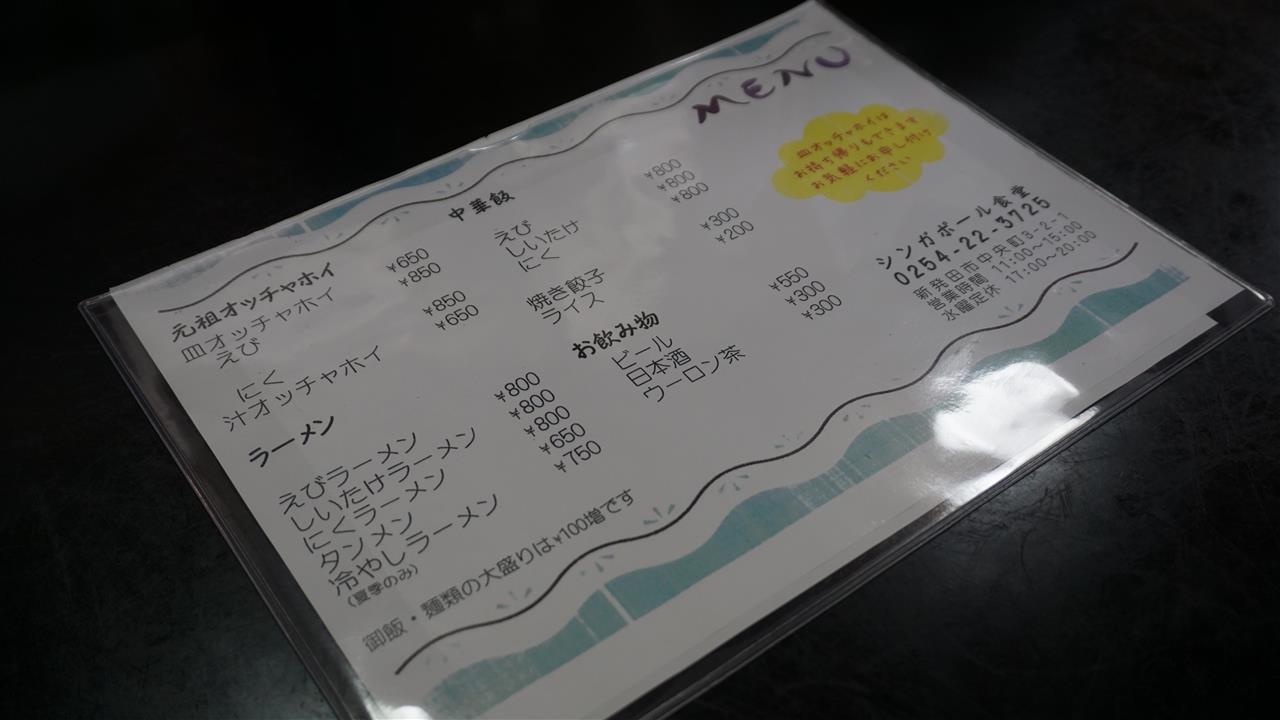 MENU
元祖オッチャホイ
皿オッチャホイ ¥650
えび ¥850
にく ¥850
汁オッチャホイ ¥650
ラーメン
えびラーメン ¥800
しいたけラーメン ¥800
にくラーメン ¥800
タンメン ¥650
冷やしラーメン ¥750
(夏季のみ)
御飯・麺類の大盛りは¥100増です
中華飯
えび ¥800
しいたけ ¥800
にく ¥800
焼き餃子 ¥300
ライス ¥200
お飲み物
ビール ¥550
日本酒 ¥300
ウーロン茶 ¥300
皿オッチャホイは
お持ち帰りもできます
お気軽にお申し付け
ください
シンガポール食堂
0254-22-3725
新発田市中央町3-2-1
営業時間 11:00~15:00
水曜定休 17:00~20:00